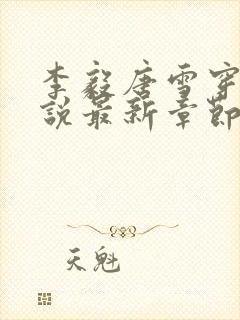 李毅唐雪穿
说最新章节
天魁